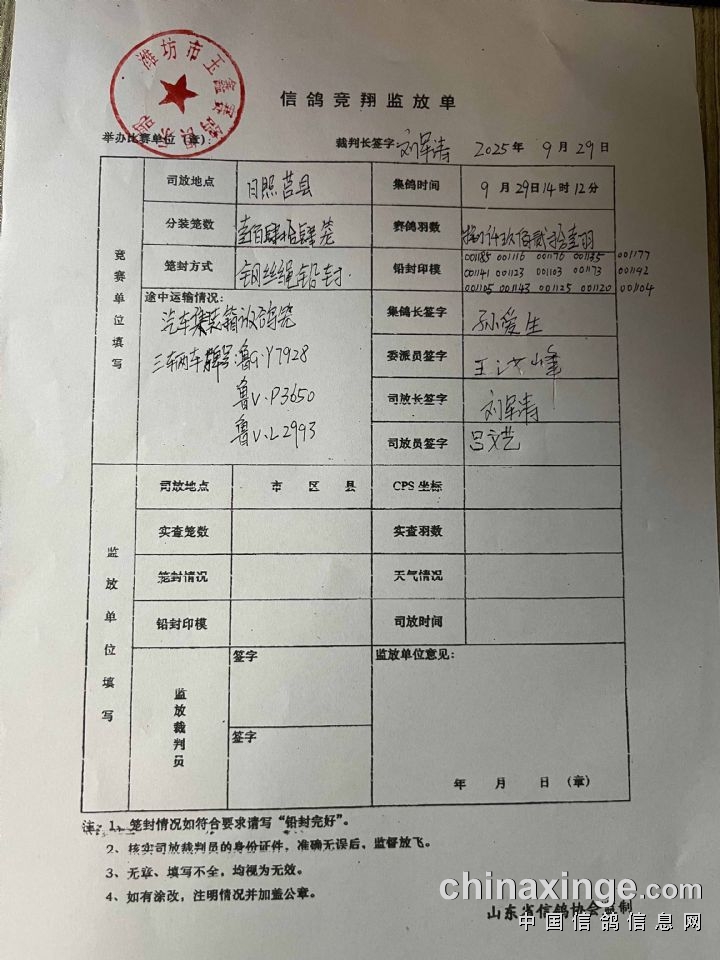 信鸽竞翔监放单
举办比赛单位（章）： 裁判长签字 刘军涛 2025年 9月29日
竞赛单位填写
司放地点 日照莒县 集鸽时间 9月29日14时12分
分装笼数 壹百肆拾肆笼 赛鸽羽数
笼封方式 钢丝绳铅封 铅封印模 001185 001116 001176 001135 001177
001141 001123 001103 001173 001192
001105 001143 001125 001120 001104
途中运输情况：
汽车集装箱放鸽笼
三辆车牌号：鲁G·Y7928
鲁V·P3650
鲁V·L2993
集鸽长签字 孙爱生
委派员签字 王洪峰
司放长签字 刘军涛
司放员签字 吕文艺
监放单位填写
司放地点 市 区 县 CPS 坐标
实查笼数 实查羽数
笼封情况 天气情况
铅封印模 司放时间
监放裁判员 签字 监放单位意见：
签字
年 月 日 （章）
注：1、笼封情况如符合要求请写“铅封完好”。
2、核实司放裁判员的身份证件，准确无误后，监督放飞。
3、无章、填写不全，均视为无效。
4、如有涂改，注明情况并加盖公章。
山东省信鸽协会监制
chinaxinge.com
中国信鸽信息网